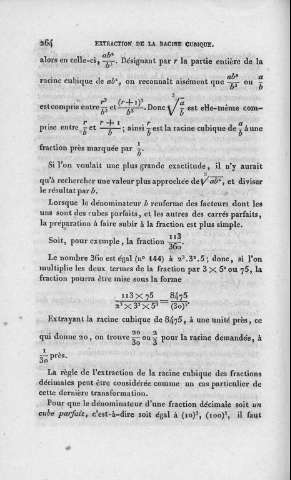 264 EXTRACTION DE LA RACINE CUBIQUE.
alors en celle-ci, ab²/b³. Désignant par r la partie entière de la
racine cubique de ab², on reconnaît aisément que ab²/b³ ou a/b
est compris entre r³/b³ et (r+1)³/b³. Donc ∛(a/b) est elle-même com-
prise entre r/b et (r+1)/b; ainsi r/b est la racine cubique de a/b à une
fraction près marquée par 1/b.
Si l'on voulait une plus grande exactitude, il n'y aurait
qu'à rechercher une valeur plus approchée de ∛ab², et diviser
le résultat par b.
Lorsque le dénominateur b renferme des facteurs dont les
uns sont des cubes parfaits, et les autres des carrés parfaits,
la préparation à faire subir à la fraction est plus simple.
Soit, pour exemple, la fraction 113/360.
Le nombre 360 est égal (n° 144) à 2³.3².5; donc, si l'on
multiplie les deux termes de la fraction par 3 × 5² ou 75, la
fraction pourra être mise sous la forme
113 × 75 / 2³ × 3³ × 5³ = 8475 / (30)³.
Extrayant la racine cubique de 8475, à une unité près, ce
qui donne 20, on trouve 20/30 ou 2/3 pour la racine demandée, à
1/30 près.
La règle de l'extraction de la racine cubique des fractions
décimales peut être considérée comme un cas particulier de
cette dernière transformation.
Pour que le dénominateur d'une fraction décimale soit un
cube parfait, c'est-à-dire soit égal à (10)³, (100)³, il faut